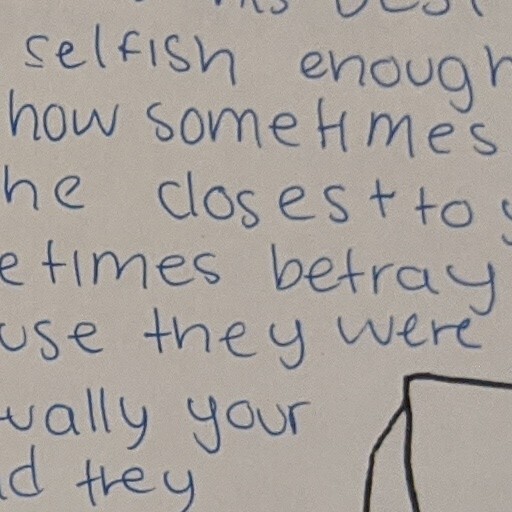 selfish enough
how sometimes
he closest to
etimes betray
use they were
ually your
d they